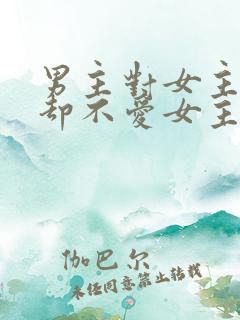 男主對女主
却不愛女主
伽巴尔
未经同意禁止转载